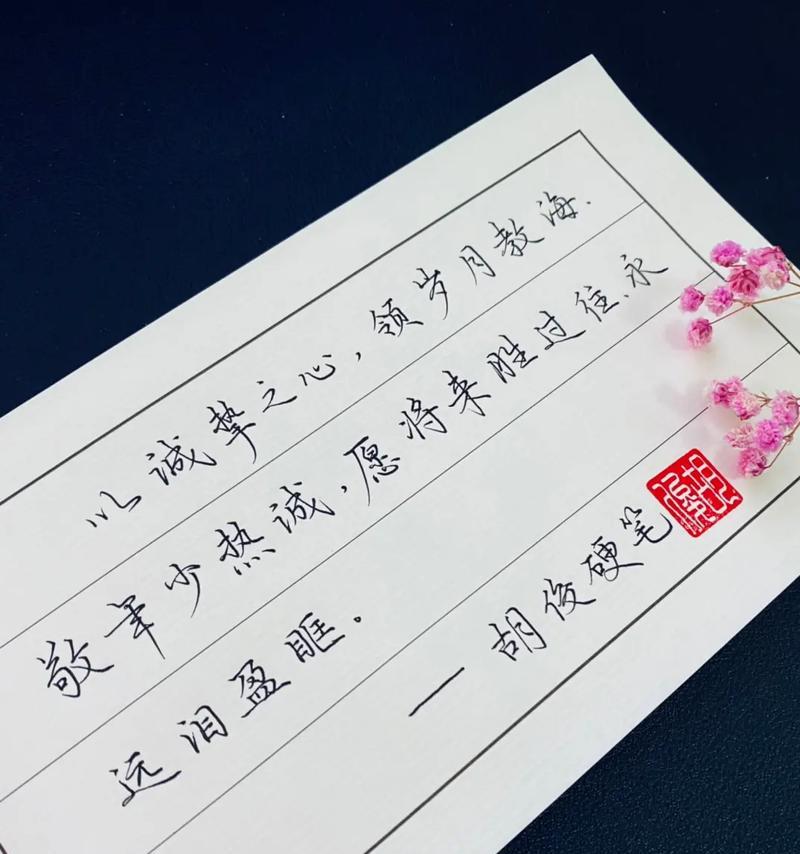 以诚挚之心，领岁月教海.
敬年少热诚，愿将来胜过往、永
远泪盈眶。
—胡俊硬笔